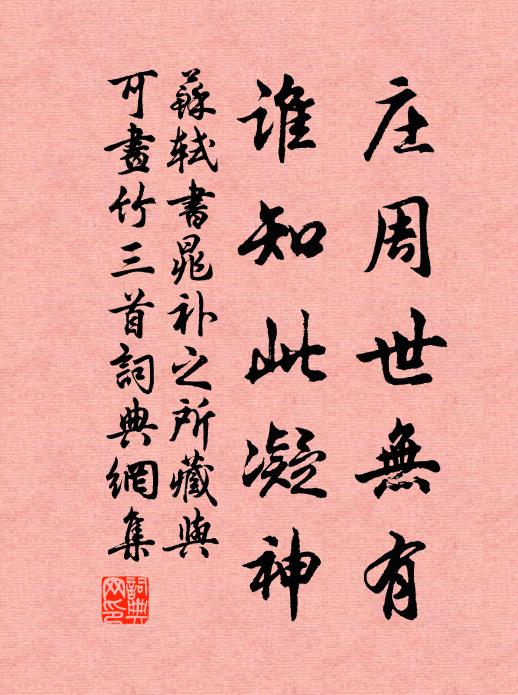 庄周世無有
谁知此凝神
蘇軾書晁补之所藏與
可畫竹三首詞典網集
詞典網印